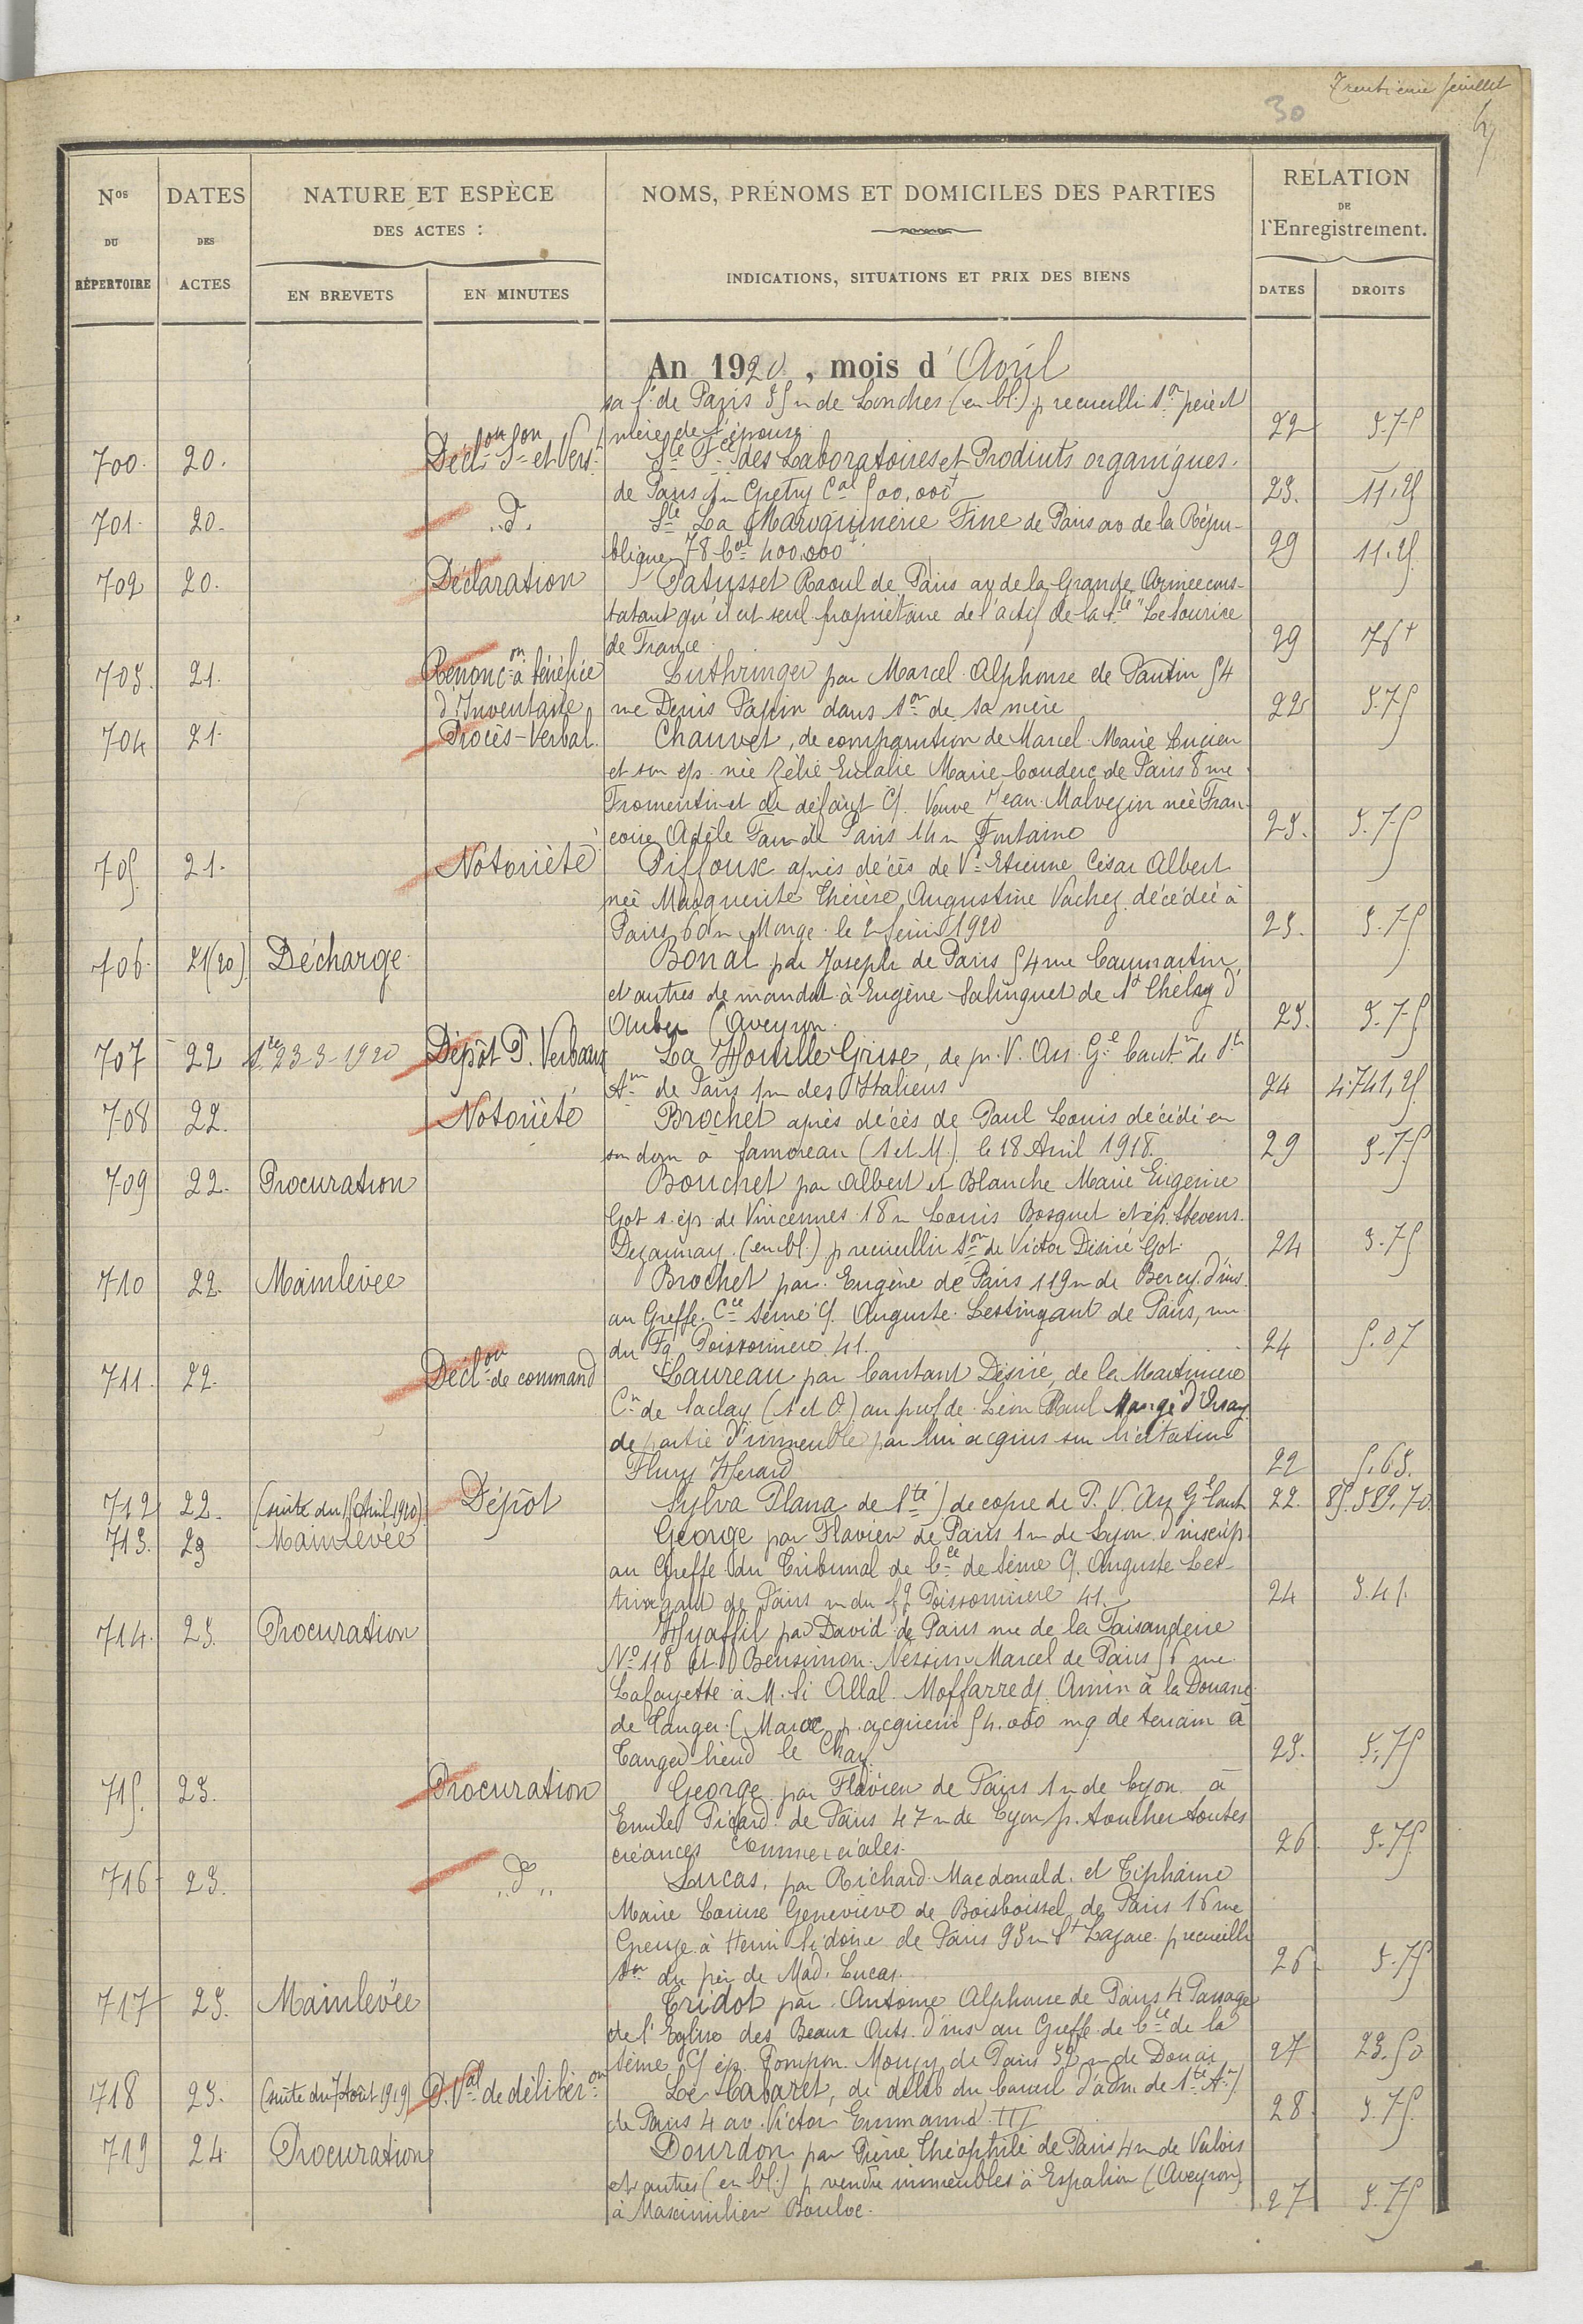 Trentième feuillet
30
Nos DU RÉPERTOIRE
DATES DES ACTES
NATURE ET ESPÈCE DES ACTES :
EN BREVETS
EN MINUTES
NOMS, PRÉNOMS ET DOMICILES DES PARTIES
INDICATIONS, SITUATIONS ET PRIX DES BIENS
RELATION DE l'Enregistrement.
DATES
DROITS
An 1920, mois d'Avril
sa f. de Paris 35 r de Londres (en bl.) p recueillir son père et
mère de l'épouse 22 3.75
700. 20. Declon Son et Verst Sté Fce des Laboratoires et Produits organiques.
de Paris r Gretry Cal 500,000f 23. 11,25
701. 20. ..d°.. Sté La Maroquinerie Fine de Paris av de la Répu-
blique 78 Cal 400.000f 29 11.25
702 20. Déclaration Patusset Raoul de Paris av de la Grande Armée cons-
tatant qu'il est seul propriétaire de l'actif de la sté "Le Sourire
de France 29 76f
703. 21. Renoncon à bénéfice Luthringer par Marcel Alphonse de Pantin 54
d'Inventaire rue Denis Papin dans son de sa mère 22 3.75
704 21. Procès-Verbal. Chauvet, de comparution de Marcel Marie Lucien
et son ép. née Zélie Eulalie Marie Couderc de Paris 8 rue
Fromentin et de défaut C/. Veuve Jean Malvezin née Fran-
çoise Adèle de Paris 14 r Fontaine 23. 3.75
705. 21. Notoriété Piffoux après décès de Ve Etienne César Albert
née Marguerite Thérèse Augustine Vachez décédée à
Paris 60 r Monge le 2 1920 23. 3.75
706. 21(20) Décharge Bonal par Joseph de Paris 54 rue Caumartin
et autres de mandat à Eugène Salinguet de St Chély d'
Aubrac (Aveyron. 23. 3.75
707 22 Ste 23-3-1920 Dépôt P. Verbaux La Houille Grise, de p. V. Ass. Gle Constn de Sté
Ame de Paris r des Italiens 24 4.741,25
708 22. Notoriété Brochet après décès de Paul Louis décédé en
son dom à Samoreau (S et M.) le 18 Avril 1918. 29 3.75
709 22. Procuration Bouchet par Albert et Blanche Marie Eugénie
Got s. ép. de Vincennes 18 r Louis Bosquet et ép. Stevens
Dezaunay (en bl.) p recueillir son de Victor Désiré Got. 24 3.75
710 22. Mainlevée Brochet par Eugène de Paris 119 r de Bercy d'ins.
au Greffe Cce Seine C/. Auguste Lestringant de Paris, rue
du Fg Poissonnière 41. 24 5.07
711. 22. Declon de command Laureau par Constant Désiré, de la Martinière
Cne de Saclay (S et O) au prof de Léon Paul Mangé d'Orsay
de partie d'immeuble par lui acquis sur licitation
Fleury Herard 22 5,63.
712 22. (suite du 15 Avril 1920) Dépôt Sylva Plana de Sté) de copie de P. V. Ass Gle Const 22. 85.589,70
713. 23 Mainlevée George par Flavien de Paris 1 r de Lyon d'inscrip.
au Greffe du Tribunal de Cce de Seine C/. Auguste Les-
tringant de Paris r du fg Poissonnière 41. 24 3.41.
714. 23. Procuration Hyaffil par David de Paris rue de la Faisanderie
No 118 et Bensimon Nessim Marcel de Paris 56 rue
Lafayette à M. Si Allal Moffarredj Amin à la Douane
de Tanger (Maroc p. acquérir 54.000 mq de terrain à
Tanger lieud le Charf. 23. 3,75
715. 23. Procuration George par Flavien de Paris 1 r de Lyon à
Emile Picard de Paris 47 r de Lyon p. toucher toutes
créances commerciales. 26 3.75
716 23. „d°„ Lucas, par Richard Macdonald et Tiphaine
Marie Louise Geneviève de Boisboissel de Paris 16 rue
Greuze à Henri Sidoine de Paris 93 r St Lazare p recueillir
son du père de Mad. Lucas. 26 3.75
717 23. Mainlevée Tridot par Antoine Alphonse de Paris 4 Passage
de l'Eglise des Beaux Arts d'ins au Greffe de Cce de la
Seine C/ ép. Pompon Mougy de Paris 32 r de Douai 27 23.50
718 23. (suite du 7 Août 1919) P. Val de délibéron Le Cabaret, de délib du Conseil d'adm de Sté Ame)
de Paris 4 av. Victor Emmanuel III 28 3.75
719 24 Procuration Dourdon par Pierre Théophile de Paris 4 r de Valois
et autres (en bl.) p vendre immeubles à Espalion (Aveyron).
à Maximilien Bouloc. 27 3.75